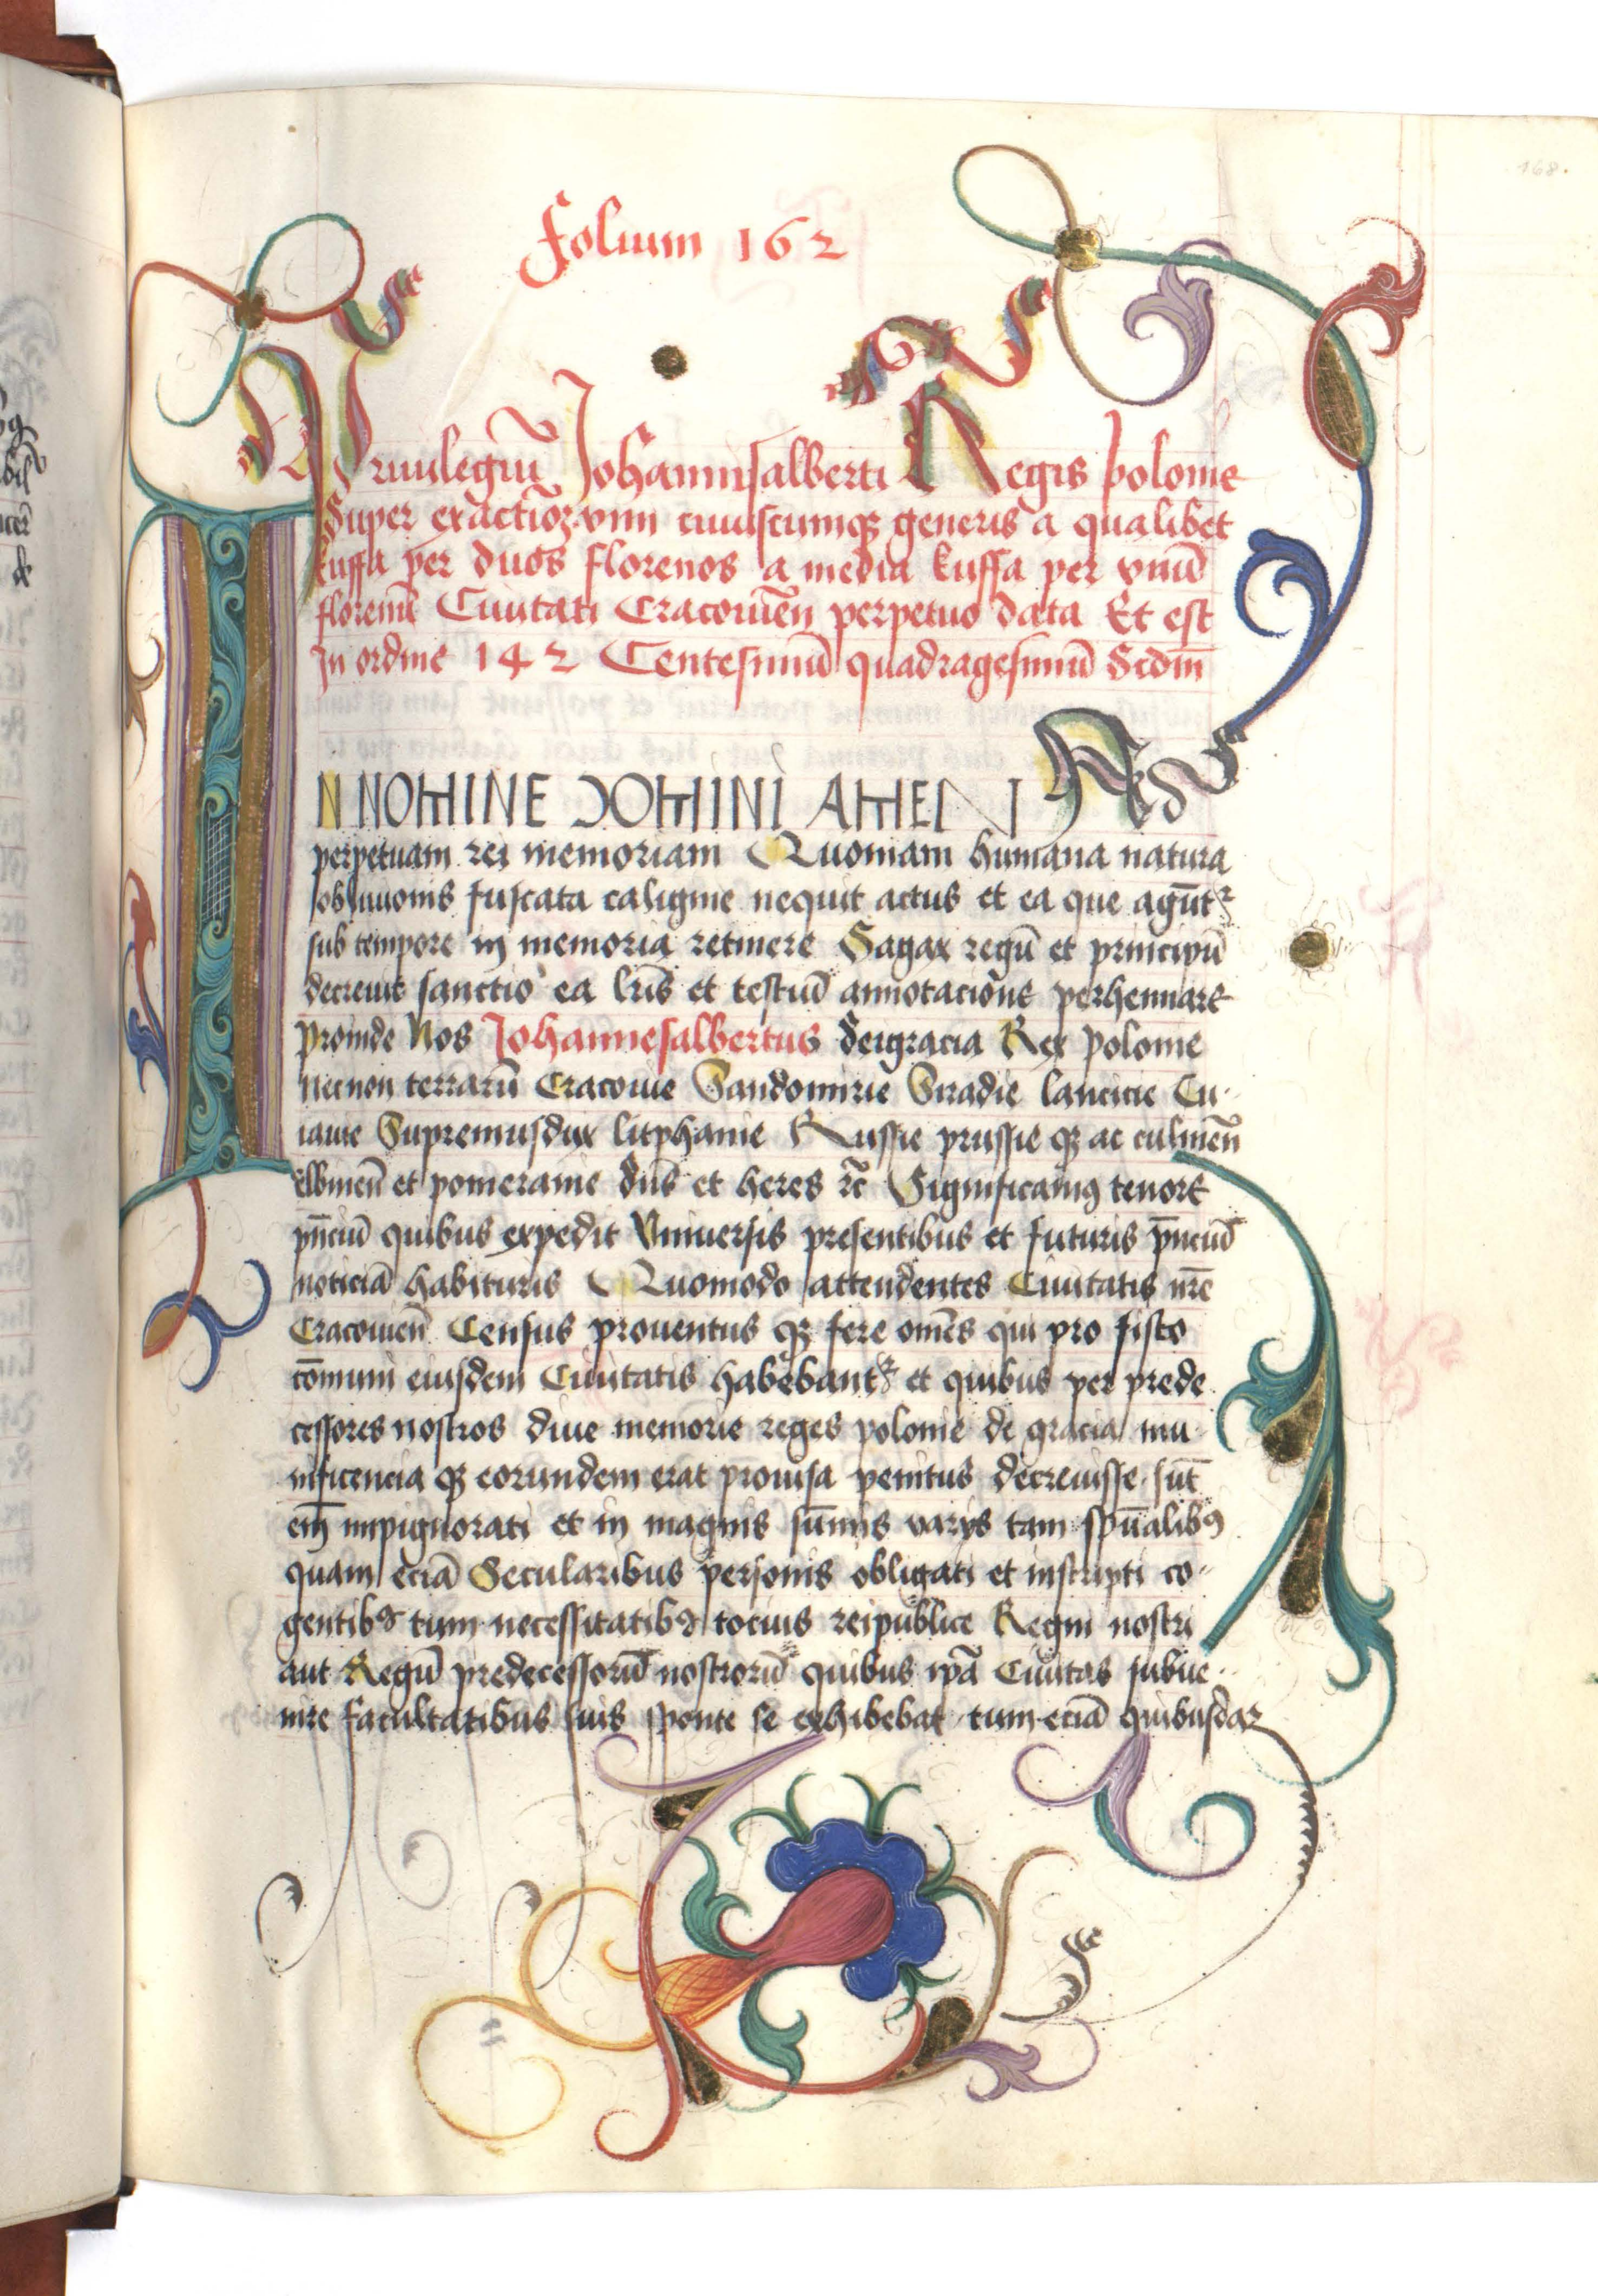 168.
folium 162
Priuilegiũ Johannisalberti Regis polonie
Super exactiõe vini cuiuscumqꝫ generis a qualibet
kuffa per duos florenos a media kuffa per vnũ
florenũ Ciuitati Cracouiẽn perpetuo data Et est
In ordine 142 Centesimũ quadragesimũ Scdm̅
IN NOMINE DOMINI AMEN Ad
perpetuam rei memoriam Quoniam humana natura
obliuionis fuscata caligine nequit actus et ea que agũtᷣ
sub tempore in memoria retinere Sagax regũ et principũ
decreuit sanctio ea lr̃is et testiũ annotacione perhennare
proinde Nos Johannesalbertus deigracia Rex polonie
necnon terrarũ Cracouie Sandomirie Siradie lancicie Cu-
iauie Supremusdux litphanie Russie prussie qꝫ ac culmẽn
elbinẽn et pomeranie dñs et heres ꝛc̃ Significamꝰ tenore
pñciũ quibus expedit Vniuersis presentibus et futuris p̃nciũ
noticiã habituris Quomodo attendentes Ciuitatis nr̃e
Cracouieñ Census prouentus qꝫ fere omẽs qui pro fisco
cõmuni eiusdem Ciuitatis habebantᷣ et quibus per prede
cessores nostros diue memorie reges polonie de gracia mu
nificencia qꝫ eorundem erat prouisa penitus decreuisse sũt
em̃ impignorati et in magnis sũmis varijs tam spũalibꝰ
quam eciã Secularibus personis obligati et inscripti co-
gentibꝰ tum necessitatibꝰ tocius reipublice Regni nostri
aut Regũ predecessorũ nostrorũ quibus ip̃a Ciuitas subue-
nire facultatibus suis sponte se exhibebat tum eciã quibusdaꝫ